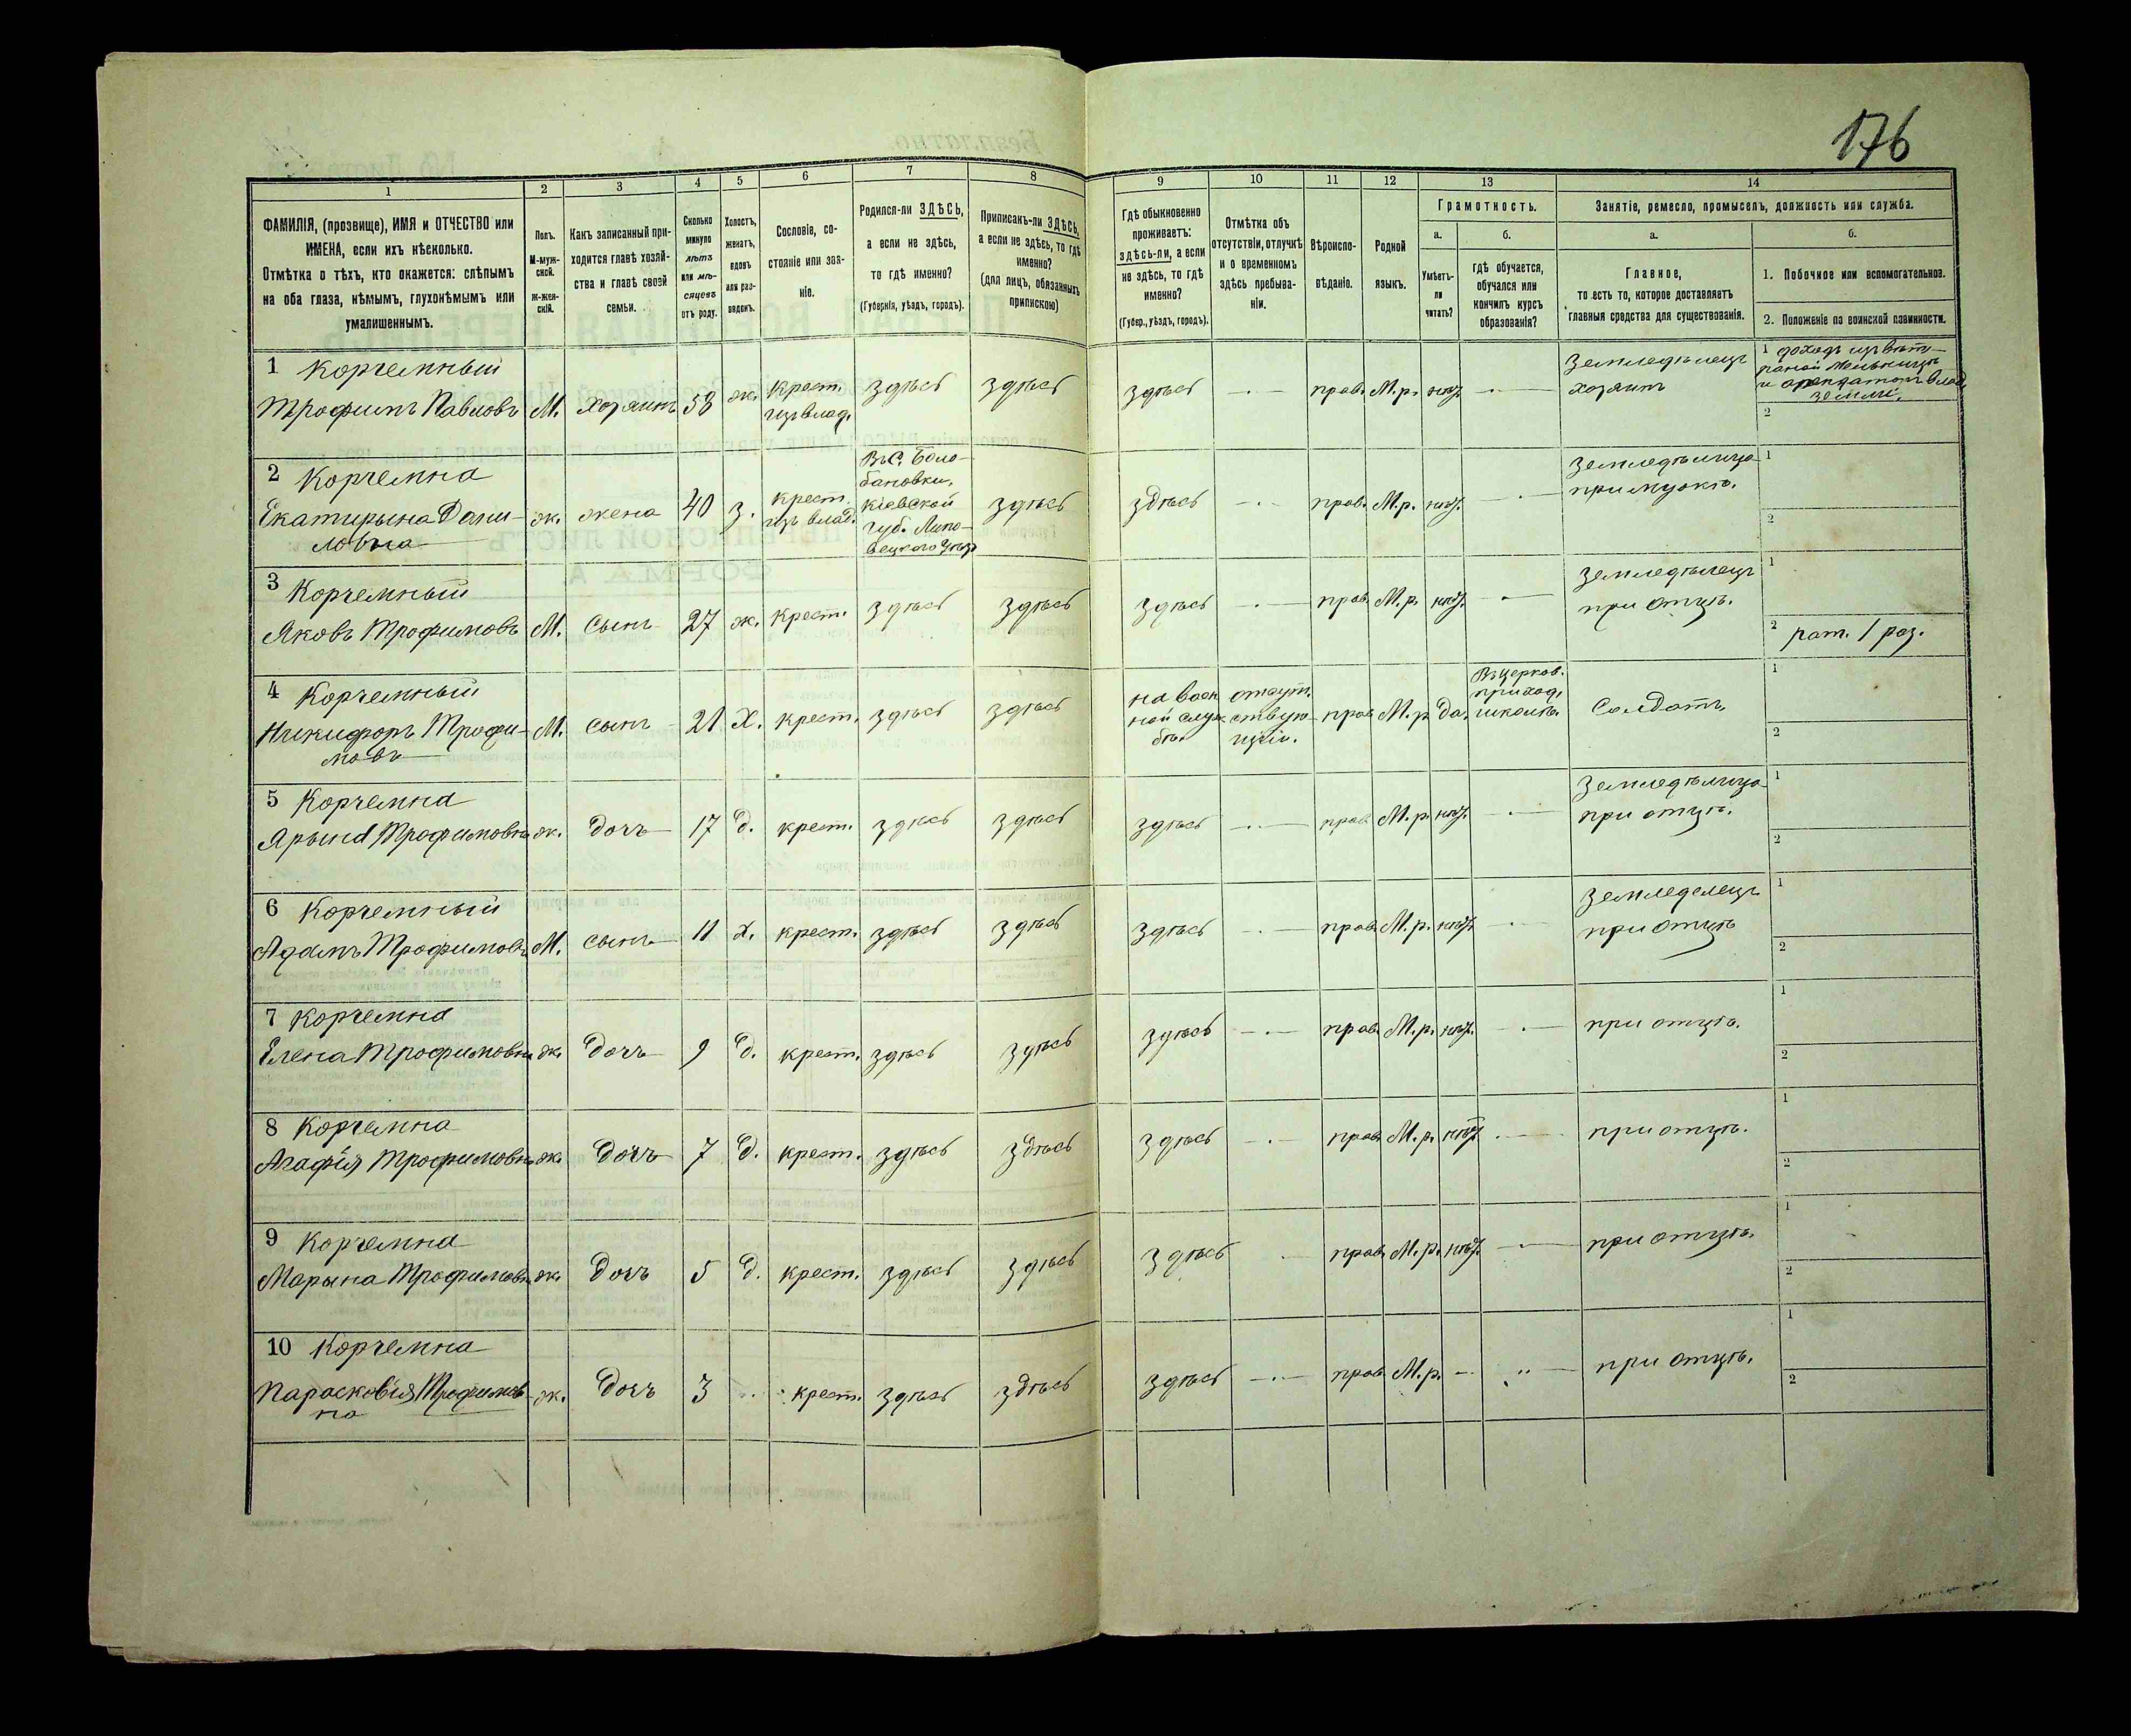 176
1 2 3 4 5 6 7 8 9 10 11 12 13 14
ФАМИЛІЯ, (прозвище), ИМЯ и ОТЧЕСТВО или
ИМЕНА, если ихъ нѣсколько.
Отмѣтка о тѣхъ, кто окажется: слѣпымъ
на оба глаза, нѣмымъ, глухонѣмымъ или
умалишеннымъ.
Полъ.
М-муж-
ской.
ж-жен-
скій.
Какъ записанный при-
ходится главѣ хозяй-
ства и главѣ своей
семьи.
Сколько
минуло
лѣтъ
или мѣ-
сяцевъ
отъ роду.
Холостъ,
женатъ,
вдовъ
или раз-
веденъ.
Сословіе, со-
стояніе или зва-
ніе.
Родился-ли ЗДѢСЬ,
а если не здѣсь,
то гдѣ именно?
(Губернія, уѣздъ, городъ).
Приписанъ-ли ЗДѢСЬ,
а если не здѣсь, то гдѣ
именно?
(для лицъ, обязанныхъ
припискою)
Гдѣ обыкновенно
проживаетъ:
здѣсь-ли, а если
не здѣсь, то гдѣ
именно?
(Губер., уѣздъ, городъ).
Отмѣтка объ
отсутствіи, отлучкѣ
и о временномъ
здѣсь пребыва-
ніи.
Вѣроиспо-
вѣданіе.
Родной
языкъ.
Грамотность.
а.
Умѣетъ-
ли
читать?
б.
гдѣ обучается,
обучался или
кончилъ курсъ
образованія?
Занятіе, ремесло, промыселъ, должность или служба.
а.
Главное,
то есть то, которое доставляетъ
главныя средства для существованія.
б.
1. Побочное или вспомогательное.
2. Положеніе по воинской повинности.
1 Корчемный
Трофимъ Павловъ М. хозяинъ 58 ж. крест.
изъ влад. здѣсь здѣсь здѣсь — прав. М.р. нѣт. —
Земледѣлецъ
хозяинъ
1 доходъ изъ вѣт-
ряной мельницы
земли.
2
2 Корчемна
Екатирына Дани-
ловна ж. жена 40 з. крест.
изъ влад.
Въ С. Бало-
бановки,
Кіевской
губ. Липо-
вецкого Уѣз.
здѣсь здѣсь — прав. М.р. нѣт. —
Земледѣлица
при мужѣ.
1
2
3 Корчемный
Яковъ Трофимовъ М. сынъ 27 ж. крест. здѣсь здѣсь здѣсь — прав. М.р. нѣт. —
Земледѣлецъ
при отцѣ.
1
2 рат. 1 раз.
4 Корчемный
Никифоръ Трофи-
мовъ М. сынъ 21 Х. крест. здѣсь здѣсь
на воен
ной служ
бѣ.
отсут.
ствую-
щій.
прав. М.р. Да.
Въ церков.
приход.
школѣ.
Солдатъ
1
2
5 Корчемна
Ярына Трофимовна ж. дочь 17 д. крест. здѣсь здѣсь здѣсь — прав. М.р. нѣт. —
Земледѣлица
при отцѣ.
1
2
6 Корчемный
Адамъ Трофимовъ М. сынъ 11 х. крест. здѣсь здѣсь здѣсь — прав. М.р. нѣт. —
Земледелецъ
при отцѣ
1
2
7 Корчемна
Елена Трофимовна ж. дочь 9 д. крест. здѣсь здѣсь здѣсь — прав. М.р. нѣт. — при отцѣ.
1
2
8 Корчемна
Агафія Трофимовна ж. дочь 7 д. крест. здѣсь здѣсь здѣсь — прав. М.р. нѣт. — при отцѣ.
1
2
9 Корчемна
Марына Трофимовн. ж. дочь 5 д. крест. здѣсь здѣсь здѣсь — прав. М.р. нѣт. — при отцѣ.
1
2
10 Корчемна
Парасковія Трофимов-
на ж. дочь 3 крест. здѣсь здѣсь здѣсь — прав. М.р. — „ — при отцѣ.
1
2